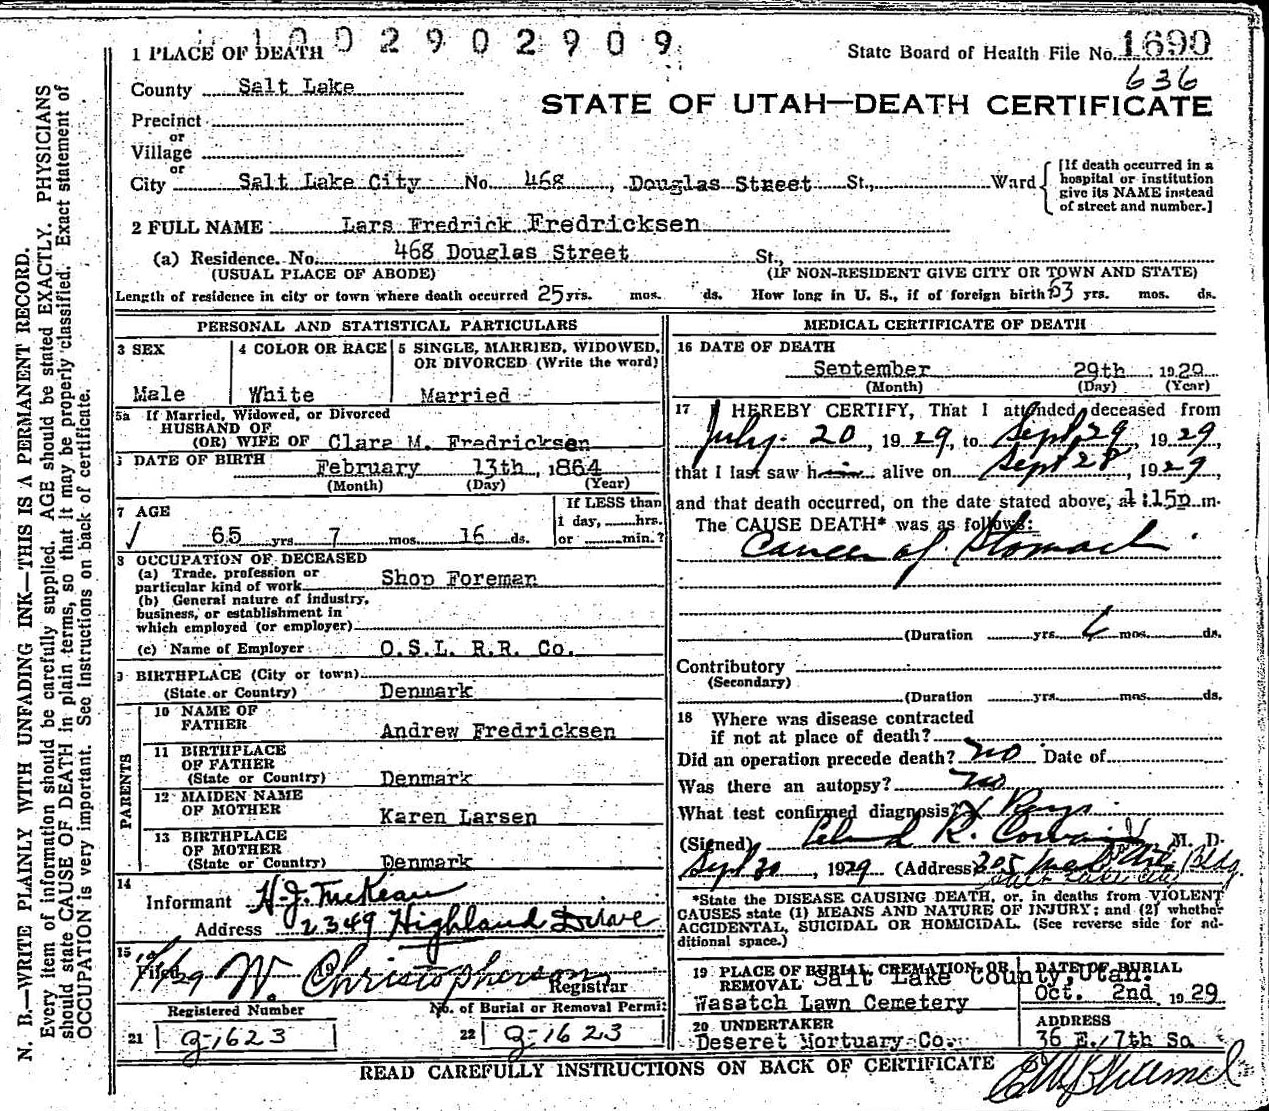 1002902909
1 PLACE OF DEATH
State Board of Health File No. 1690
636
County Salt Lake
STATE OF UTAH—DEATH CERTIFICATE
Precinct
or
Village
or
City Salt Lake City No. 468, Douglas Street St., Ward
[If death occurred in a hospital or institution give its NAME instead of street and number.]
2 FULL NAME Lars Fredrick Fredricksen
(a) Residence. No. 468 Douglas Street St.,
(USUAL PLACE OF ABODE) (IF NON-RESIDENT GIVE CITY OR TOWN AND STATE)
Length of residence in city or town where death occurred 25 yrs. mos. ds. How long in U. S., if of foreign birth? 63 yrs. mos. ds.
PERSONAL AND STATISTICAL PARTICULARS
3 SEX
Male
4 COLOR OR RACE
White
5 SINGLE, MARRIED, WIDOWED,
OR DIVORCED (Write the word)
Married
5a If Married, Widowed, or Divorced
HUSBAND OF
(OR) WIFE OF Clara M. Fredricksen
DATE OF BIRTH February 13th, 1864
(Month) (Day) (Year)
7 AGE
65 yrs 7 mos. 16 ds.
If LESS than
1 day, hrs.
or min.?
8 OCCUPATION OF DECEASED
(a) Trade, profession or
particular kind of work Shop Foreman
(b) General nature of industry,
business, or establishment in
which employed (or employer)
(c) Name of Employer O.S.L. R.R. Co.
9 BIRTHPLACE (City or town)
(State or Country) Denmark
PARENTS
10 NAME OF
FATHER Andrew Fredricksen
11 BIRTHPLACE
OF FATHER
(State or Country) Denmark
12 MAIDEN NAME
OF MOTHER Karen Larsen
13 BIRTHPLACE
OF MOTHER
(State or Country) Denmark
14
Informant H.J. McKean
Address 2349 Highland Drive
15
Filed W. Christopherson
Registrar
Registered Number No. of Burial or Removal Permit
21 G-1623 22 G-1623
MEDICAL CERTIFICATE OF DEATH
16 DATE OF DEATH
September 29th, 1929
(Month) (Day) (Year)
17 I HEREBY CERTIFY, That I attended deceased from
July 20, 1929, to Sept 29, 1929,
that I last saw him alive on Sept 28, 1929,
and that death occurred, on the date stated above, at 1:15p m.
The CAUSE DEATH* was as follows:
Cancer of Stomach
(Duration yrs. 6 mos. ds.
Contributory
(Secondary)
(Duration yrs. mos. ds.
18 Where was disease contracted
if not at place of death?
Did an operation precede death? no Date of
Was there an autopsy? no
What test confirmed diagnosis? X Rays
(Signed) Leland R. Cowan M. D.
Sept 30, 1929 (Address) 205 Med Arts Bldg.
Salt Lake City
*State the DISEASE CAUSING DEATH, or, in deaths from VIOLENT
CAUSES state (1) MEANS AND NATURE OF INJURY; and (2) whether
ACCIDENTAL, SUICIDAL OR HOMICIDAL. (See reverse side for ad-
ditional space.)
19 PLACE OF BURIAL, CREMATION, OR
REMOVAL Salt Lake County, Utah.
Wasatch Lawn Cemetery
DATE OF BURIAL
Oct. 2nd 1929
20 UNDERTAKER
Deseret Mortuary Co.
ADDRESS
36 E. 7th So.
READ CAREFULLY INSTRUCTIONS ON BACK OF CERTIFICATE
N. B.—WRITE PLAINLY WITH UNFADING INK—THIS IS A PERMANENT RECORD.
Every item of information should be carefully supplied. AGE should be stated EXACTLY. PHYSICIANS
should state CAUSE OF DEATH in plain terms, so that it may be properly classified. Exact statement of
OCCUPATION is very important. See instructions on back of certificate.